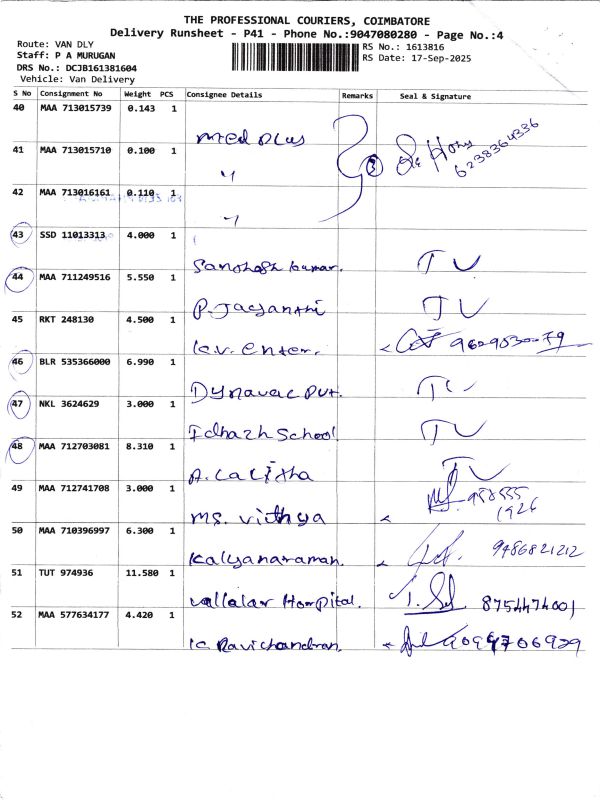 THE PROFESSIONAL COURIERS, COIMBATORE
Delivery Runsheet - P41 - Phone No.:9047080280 - Page No.:4
Route: VAN DLY
Staff: P A MURUGAN
DRS No.: DCJB161381604
Vehicle: Van Delivery
RS No.: 1613816
RS Date: 17-Sep-2025
S No Consignment No Weight PCS Consignee Details Remarks Seal & Signature
40 MAA 713015739 0.143 1
Med Plus 3 6238364336
41 MAA 713015710 0.100 1
"
42 MAA 713016161 0.110 1
"
43 SSD 11013313 4.000 1
Santhosh kumar. TV
44 MAA 711249516 5.550 1
P. Jayanthi TV
45 RKT 248130 4.500 1
K.V. Enter. 9629530079
46 BLR 535366000 6.990 1
Dynavac Pvt. TV
47 NKL 3624629 3.000 1
Idhazh School TV
48 MAA 712703081 8.310 1
A. Lalitha TV
49 MAA 712741708 3.000 1
Ms. Vithya 1926
50 MAA 710396997 6.300 1
Kalyanaraman. 9486821212
51 TUT 974936 11.580 1
Vallalar Hospital. 8754474001
52 MAA 577634177 4.420 1
K Ravichandran.